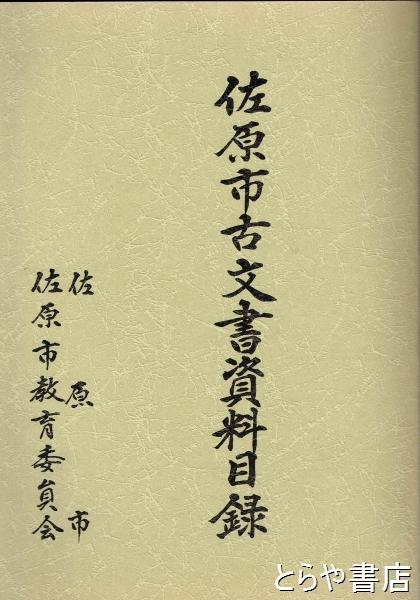 佐原市古文書資料目録
佐原市
佐原市教育委員会
とらや書店